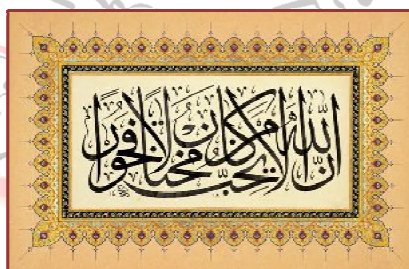 ان الله لا يحب من كان مختالا فخورا